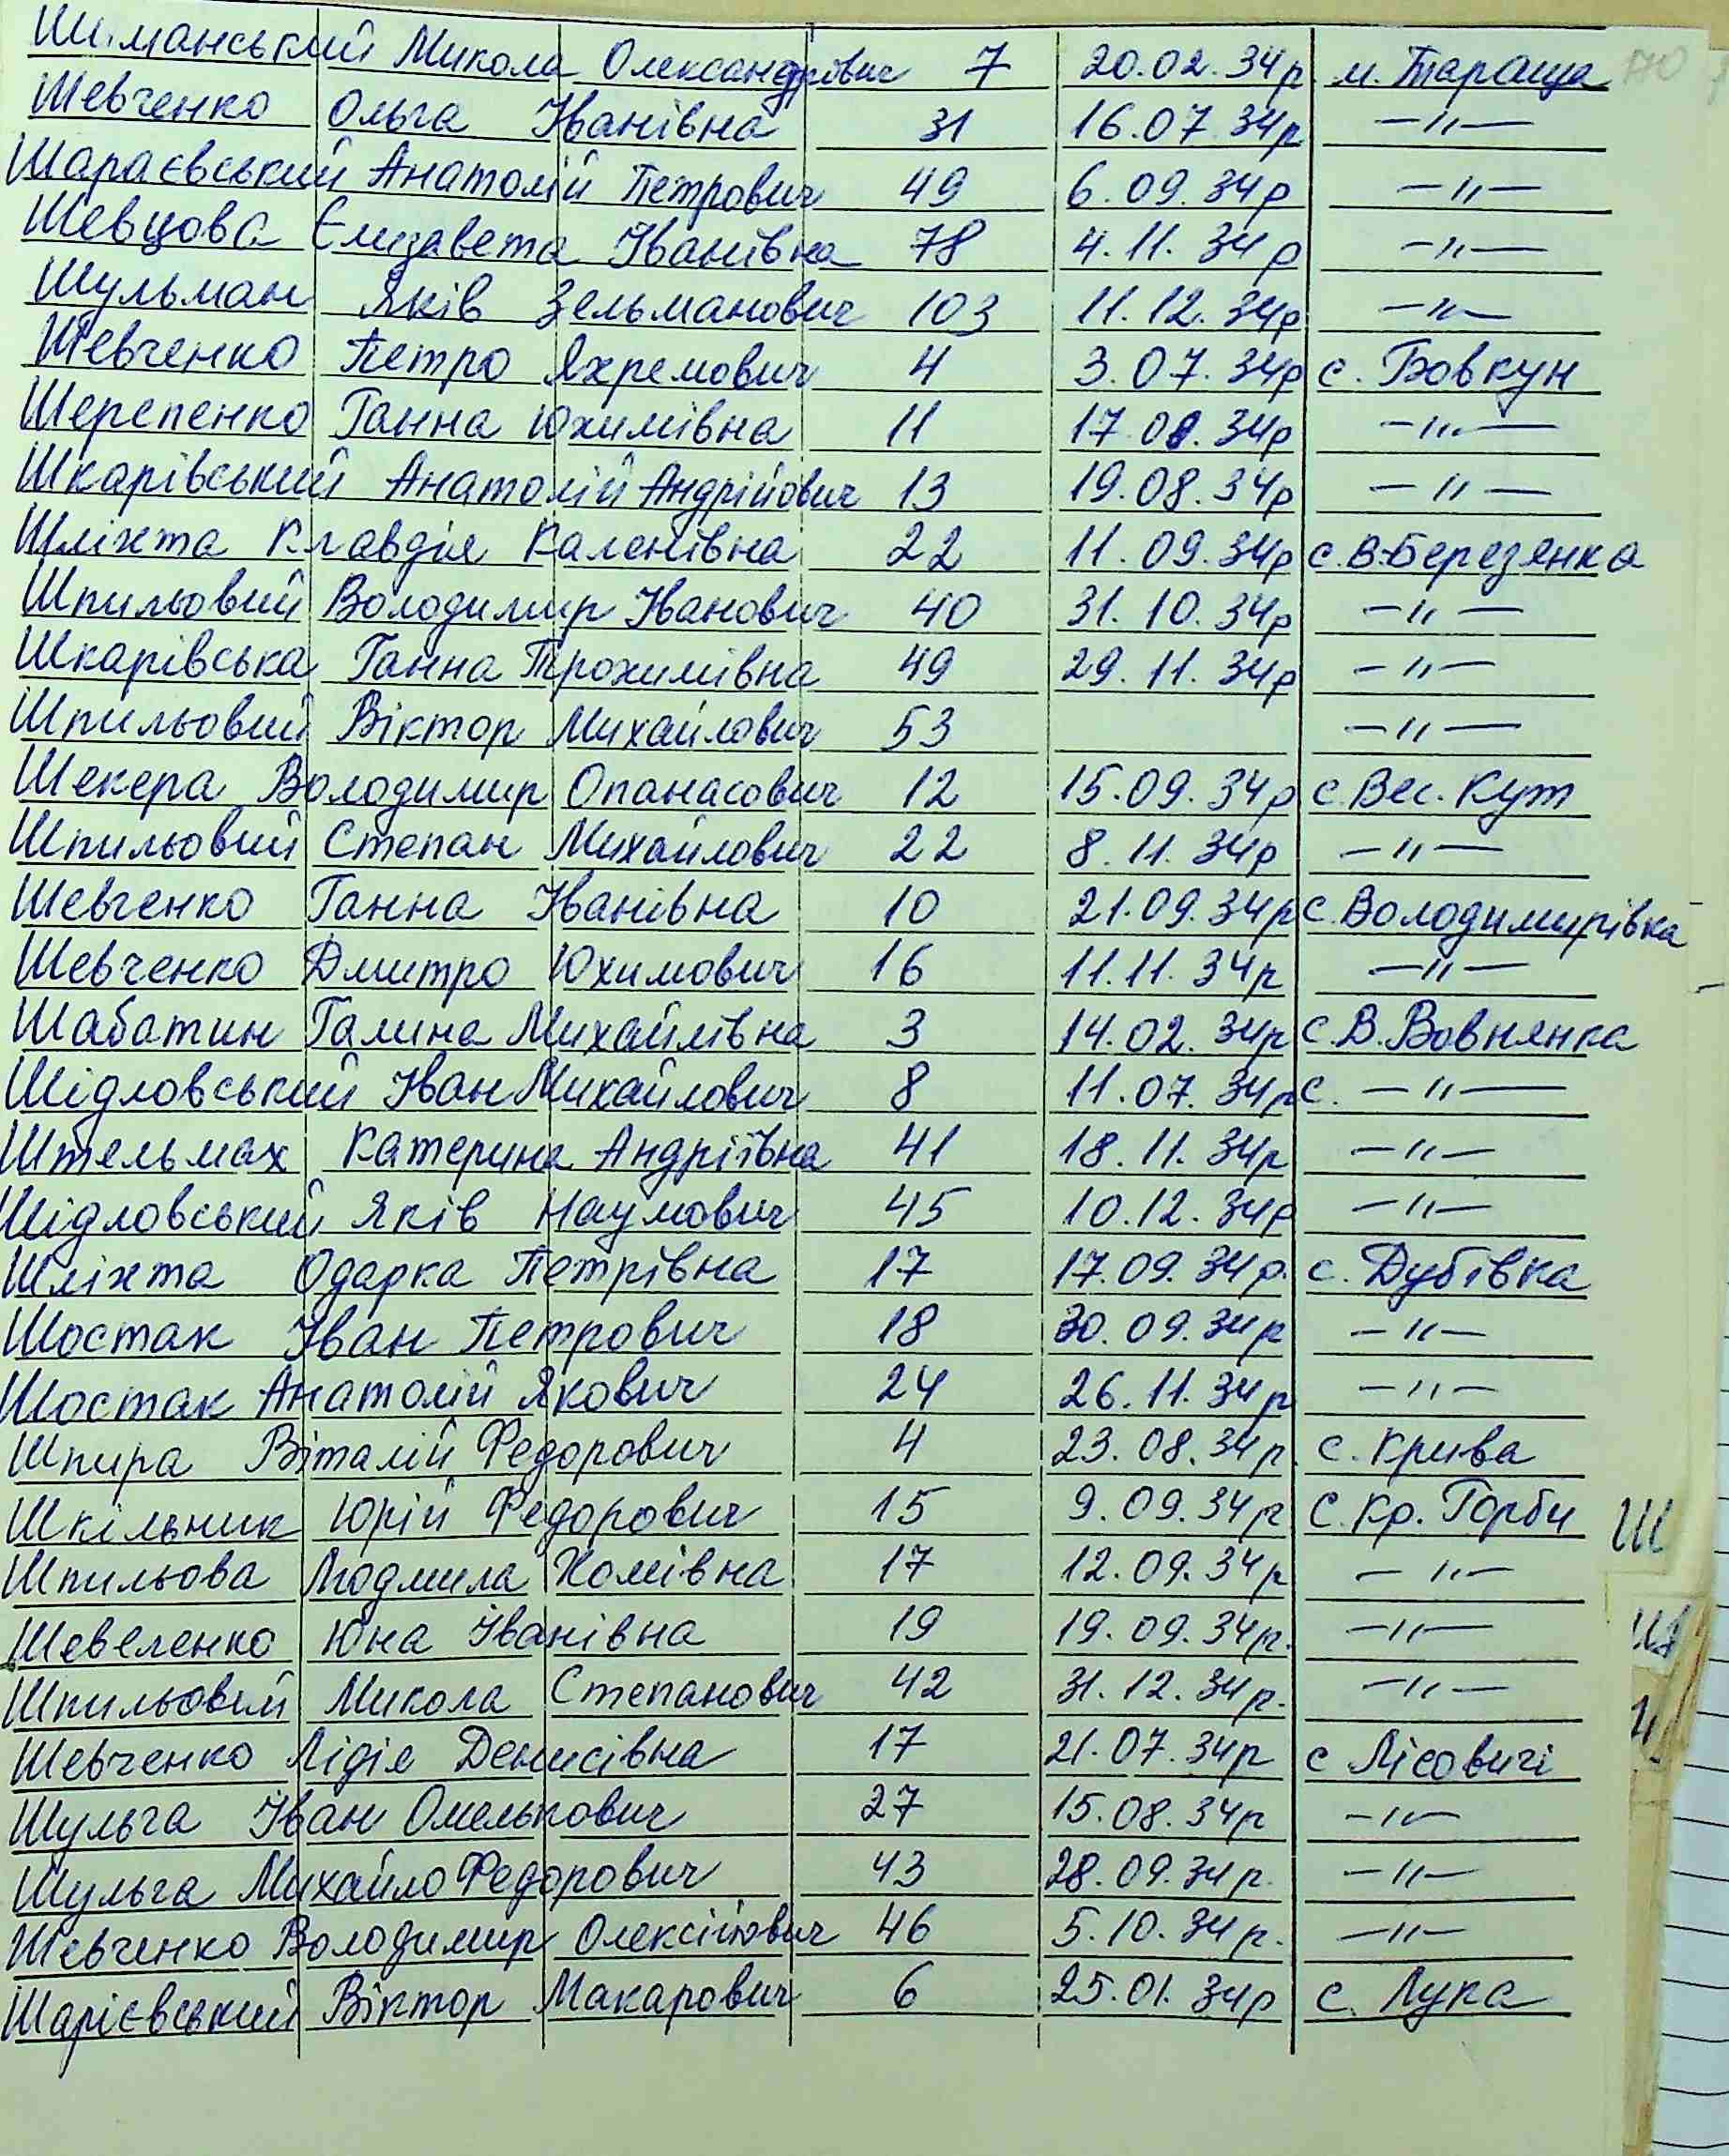 Шиманський Микола Олександрович 7 20.02.34р м. Тараща
Шевченко Ольга Іванівна 31 16.07.34р —〃—
Шараєвський Анатолій Петрович 49 6.09.34р —〃—
Шевцова Єлизавета Іванівна 78 4.11.34р —〃—
Шульман Яків Зельманович 103 11.12.34р —〃—
Шевченко Петро Яхремович 4 3.07.34р с. Бовкун
Шерепенко Ганна Юхимівна 11 17.08.34р —〃—
Шкарівський Анатолій Андрійович 13 19.08.34р —〃—
Шліхта Клавдія Каленівна 22 11.09.34р с.В-Березянка
Шпильовий Володимир Іванович 40 31.10.34р —〃—
Шкарівська Ганна Трохимівна 49 29.11.34р —〃—
Шпильовий Віктор Михайлович 53 —〃—
Шекера Володимир Опанасович 12 15.09.34р с.Вес. Кут
Шпильовий Степан Михайлович 22 8.11.34р —〃—
Шевченко Ганна Іванівна 10 21.09.34р с.Володимирівка
Шевченко Дмитро Юхимович 16 11.11.34р —〃—
Шабатин Галина Михайлівна 3 14.02.34р с.В.Вовнянка
Шідловський Іван Михайлович 8 11.07.34р с. —〃—
Штельмах Катерина Андріївна 41 18.11.34р —〃—
Шідловський Яків Наумович 45 10.12.34р —〃—
Шліхта Одарка Петрівна 17 17.09.34р. с. Дубівка
Шостак Іван Петрович 18 30.09.34р —〃—
Шостак Анатолій Якович 24 26.11.34р —〃—
Шпира Віталій Федорович 4 23.08.34р. с. Крива
Шкільник Юрій Федорович 15 9.09.34р с.Кр. Горби Ш
Шпильова Людмила Хомівна 17 12.09.34р —〃—
Шевеленко Юна Іванівна 19 19.09.34р. —〃—
Шпильовий Микола Степанович 42 31.12.34р. —〃—
Шевченко Лідія Денисівна 17 21.07.34р с Лісовичі
Шульга Іван Омелькович 27 15.08.34р —〃—
Шульга Михайло Федорович 43 28.09.34р. —〃—
Шевченко Володимир Олексійович 46 5.10.34р. —〃—
Шарієвський Віктор Макарович 6 25.01.34р с. Лука